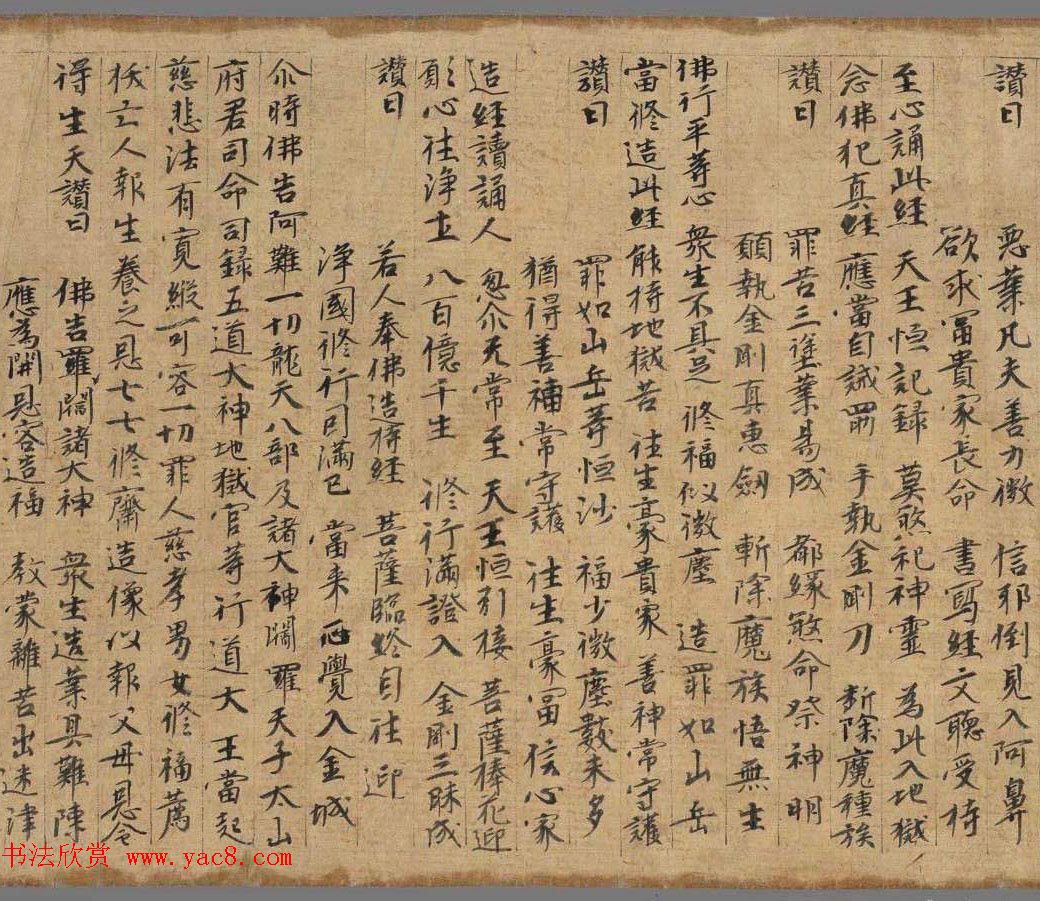 讚曰 惡業凡夫善力微 信邪倒見入阿鼻
欲求冨貴家長命 書寫經文聽受持
至心誦此經 天王恒記録 莫煞祀神靈 為此入地獄
念佛犯真經 應當自誡勗 手執金剛刀 斷除魔種族
讚曰 罪苦三塗業易成 都緣煞命祭神明
願執金剛真惠劒 斬除魔族悟無生
佛行平等心 衆生不具足 修福似微塵 造罪如山岳
當修造此經 能持地獄苦 往生豪貴家 善神常守護
讚曰 罪如山岳等恒沙 福少微塵數未多
猶得善神常守護 往生豪冨信心家
造經讀誦人 忽尒无常至 天王恒引接 菩薩捧花迎
願心往淨土 八百億千生 修行滿證入 金剛三昧成
讚曰 若人奉佛造持經 菩薩臨終自往迎
淨國修行司滿已 當来正覺入金城
尒時佛告阿難一切龍天八部及諸大神閻羅天子太山
府君司命司録五道大神地獄官等行道大王當起
慈悲法有寬縱可容一切罪人慈孝男女修福薦
拔亡人報生養之恩七七修齋造像以報父母恩令
得生天讚曰 佛告羅閻諸大神 衆生造業具難陳
應為開恩容造福 教蒙離苦出迷津
书法欣赏 www.yac8.com